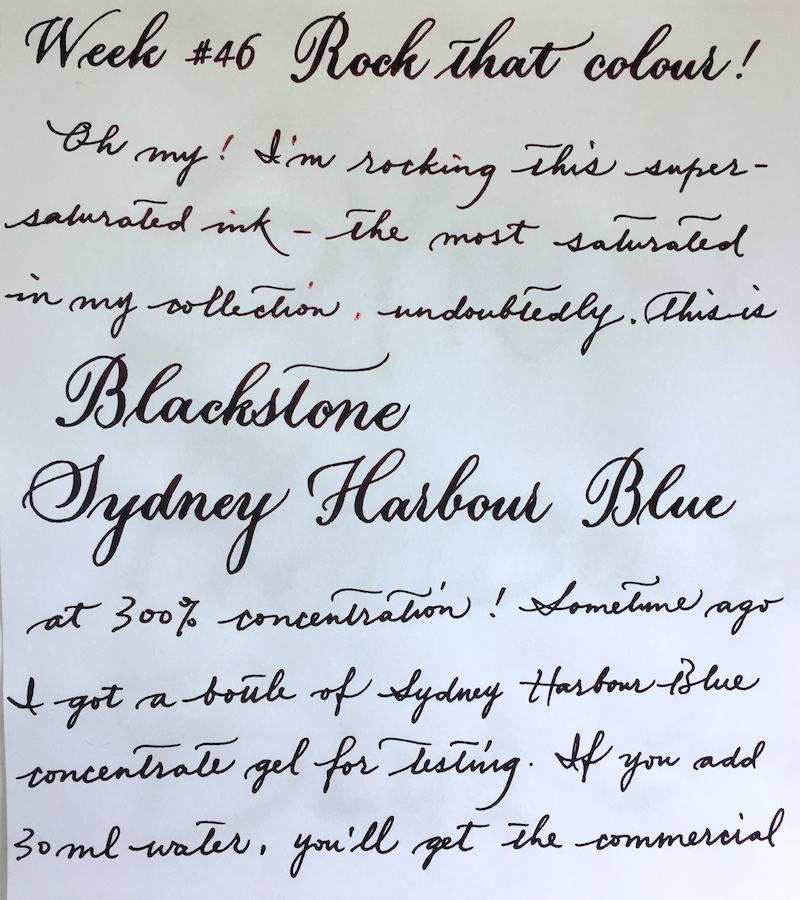 Week #46 Rock that colour!
Oh my! I'm rocking this super-
saturated ink – the most saturated
in my collection, undoubtedly. This is
Blackstone
Sydney Harbour Blue
at 300% concentration! Sometime ago
I got a bottle of Sydney Harbour Blue
concentrate gel for testing. If you add
30ml water, you'll get the commercial